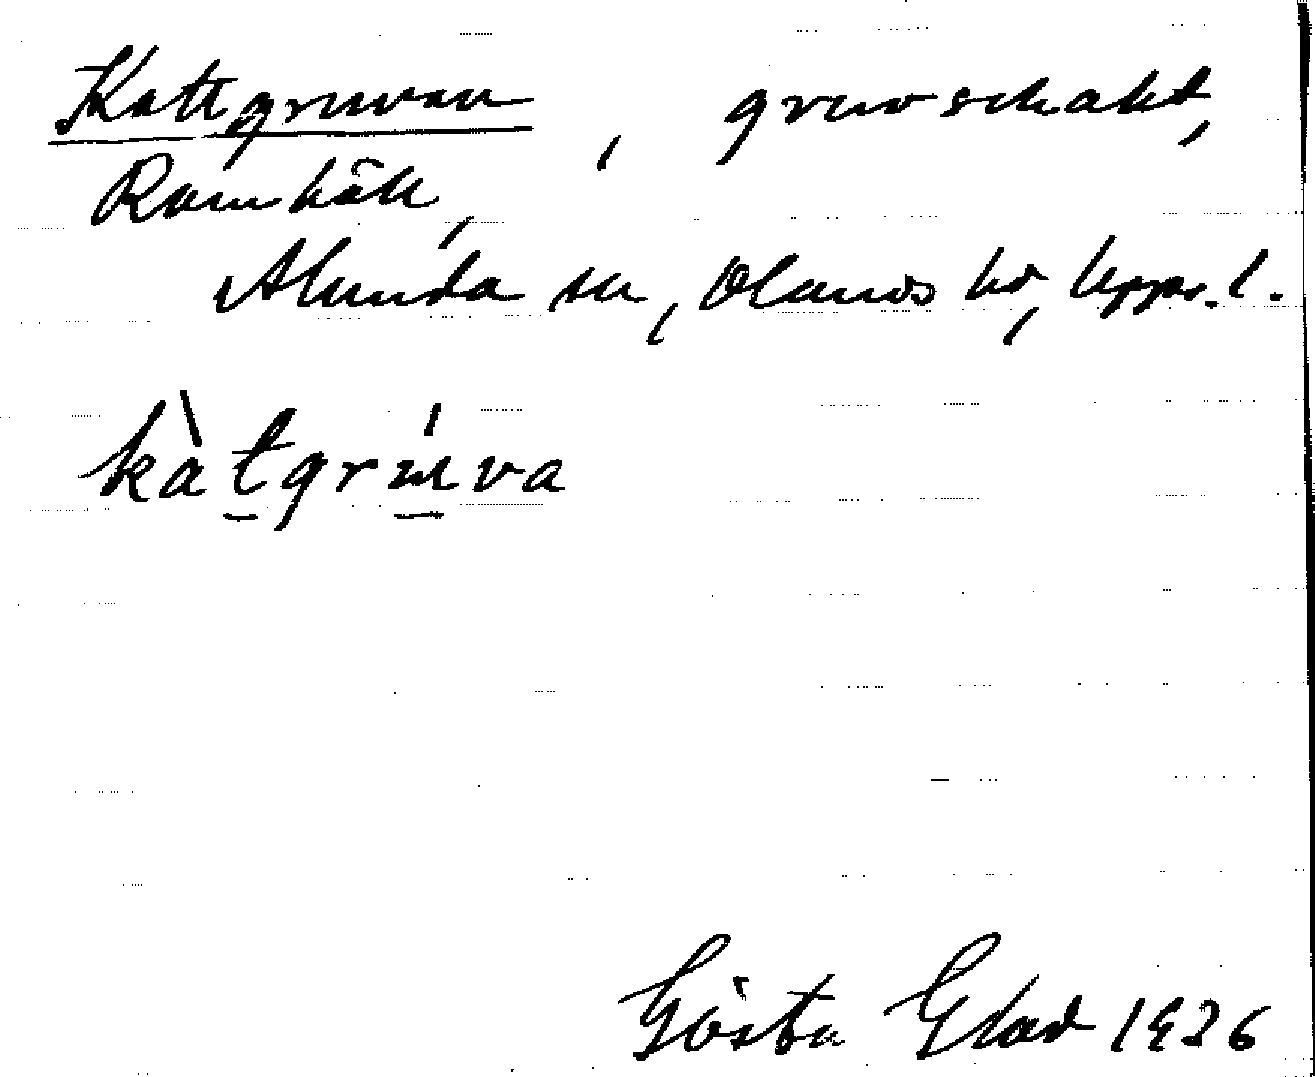 Kattgruvan, gruvschakt,
Ramhäll,
Alunda sn, Olands hd, Upps. l.
kàtgrúva
Gösta Glad 1926